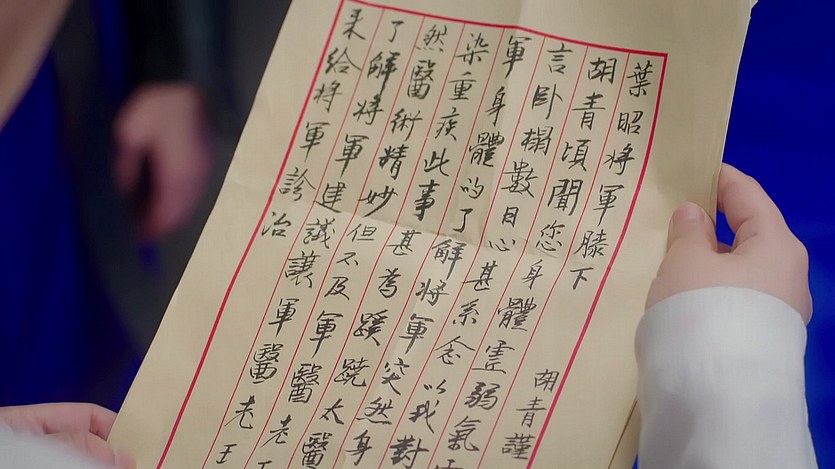 葉昭將軍膝下 胡青謹
胡青頃聞您身體虛弱氣
言卧榻數日心甚系念以我對
軍身體的了解將軍突然身
染重疾此事甚為蹊蹺太醫
然醫術精妙但不及軍醫老
了解將軍建議讓軍醫老王
來給將軍診治